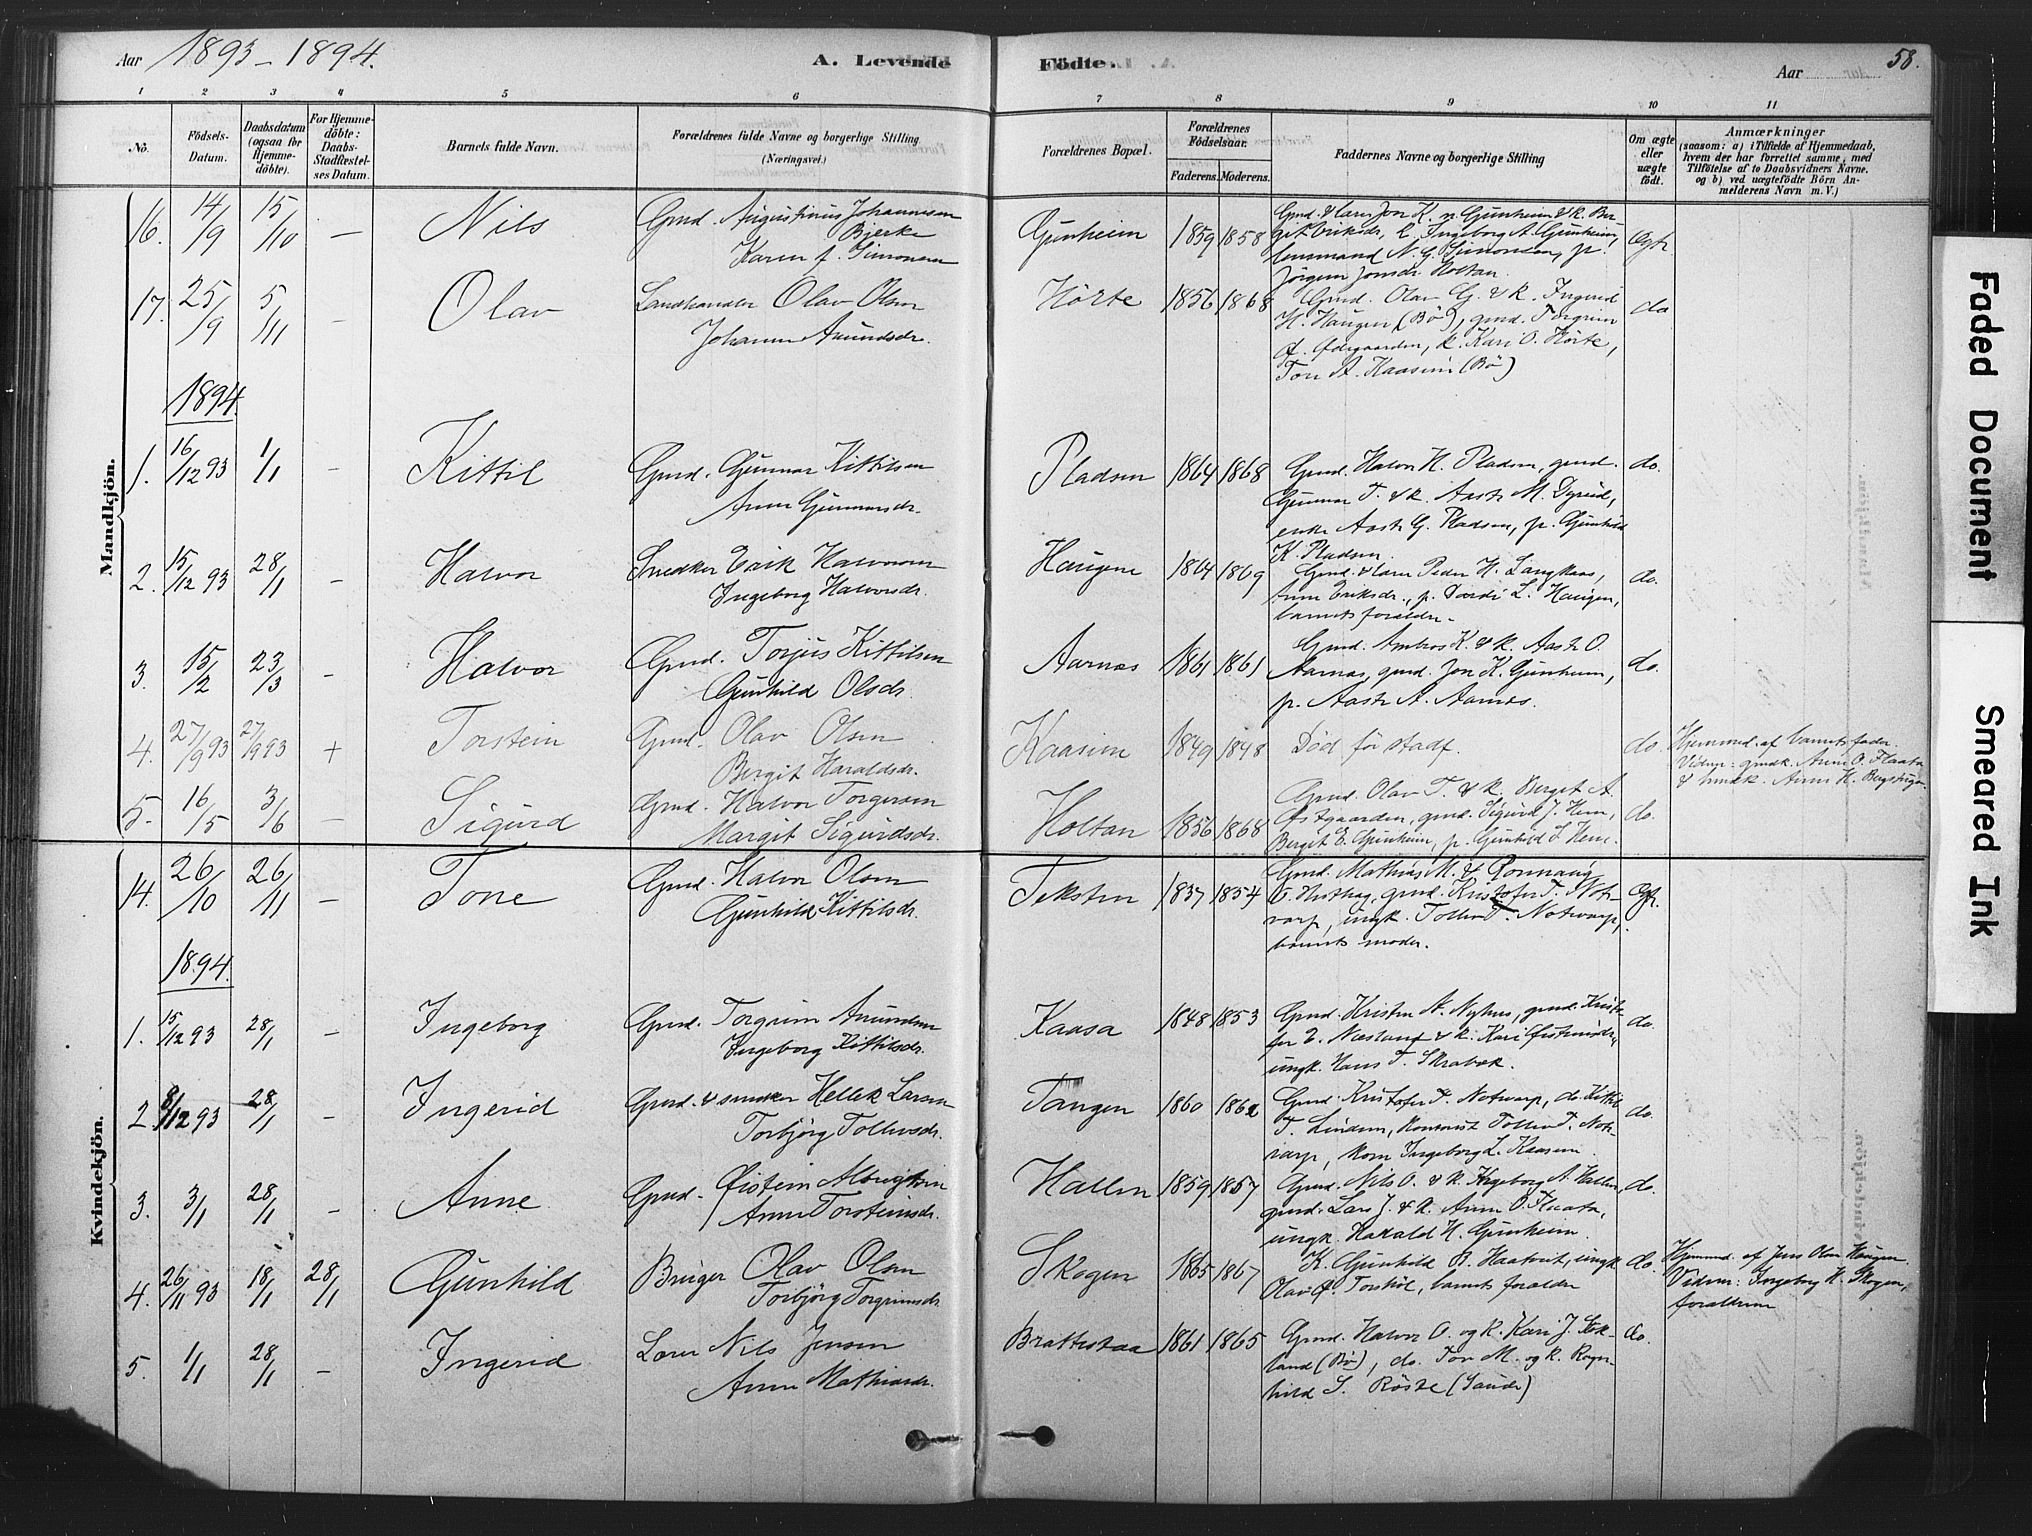 Aar 1893-1894.
A. Levende
Födte.
Aar
58.
1 2 3 4 5 6 7 8 9 10 11
No.
Födsels-
Datum.
Daabsdatum
(ogsaa for
Hjemme-
döbte).
For Hjemme-
döbte:
Daabs-
Stadfæstel-
ses Datum.
Barnets fulde Navn.
Forældrenes fulde Navne og borgerlige Stilling
(Næringsvei.)
Forældrenes Bopæl.
Forældrenes
Födselsaar.
Faderens. Moderens.
Faddernes Navne og borgerlige Stilling
Om ægte
eller
uægte
födt.
Anmærkninger
(saasom: a) i Tilfælde af Hjemmedaab,
hvem der har forrettet samme, med
Tilföielse af to Daabsvidners Navne.
og b) ved uægtefödte Börn An-
melderens Navn m. V.)
Mandkjön.
16. 14/9 15/10 — Nils
Gmd. Augustinus Johannesen
Bjerke
Karen f. Simonsen
Gunheim 1859 1858
Gmd. & lærer Jon K. n. Gunheim & k. Ber-
git Eriksdr, k. Ingeborg A. Gunheim,
lensmand N. G. Simonsen, p.
Jörgine Jonsdr. Holtan.
Ægte
17. 25/9 5/11 — Olav
Landhandler Olav Olsen
Johanne Amundsdr.
Hörte 1856 1868
Gmd. Olav G. & k. Ingerid
H. Haugen (Bö), gmd. Torgrim
k. Kari O. Hörte,
Tone A. Kaasim (Bö)
do
1894.
1. 16/12 93 1/1 — Kittil
Gmd. Gunnar Kittilsen
Anne Gunnarsdr.
Pladsen 1864 1868
Gmd. Halvor H. Pladsen, gmd.
Gunnar T. & k. Aaste M. Dyrud,
enke Aaste G. Pladsen, p. Gunhild
K. Pladsen.
do.
2. 15/12 93 28/1 — Halvor
Snedker Erik Halvorsen
Ingeborg Halvorsdr.
Haugene 1864 1869
Gmd. & lærer Peder H. Langkaas,
Anne Eriksdr., p. L. Haugen,
barnets forældre.
do.
3. 15/2 23/3 — Halvor
Gmd. Torjus Kittilsen
Gunhild Olsdr.
Aarnes 1861 1861
Gmd. Ambros K. & k. Aaste O.
Aarnes, gmd. Jon K. Gunheim,
p. Aaste A. Aarnes.
do.
4. 27/9 93 27/9 93 + Torstein
Gmd. Olav Olsen
Bergit Haraldsdr.
Kaasim 1849 1848
Död för stadf.
do.
Hjemmed. af barnets fader.
Vidner: gmdk. Anne O. Flaata
& Anne H. Bergstugen
5. 16/5 3/6 — Sigurd
Gmd. Halvor Torgersen
Margit Sigurdsdr.
Holtan 1856 1868
Gmd. Olav T. & k. Berget A.
Östgaarden, gmd. Sigurd J. Hem,
Berget E. Gunheim, p. Gunhild S. Hem.
do.
Kvindekjön.
14. 26/10 26/11 — Tone
Gmd. Halvor Olsen
Gunhild Kittilsdr.
Teksten 1837 1854
Gmd. Mathias M. & Rönnaug
gmd. Kristofer T. Not-
varp, ungk. Tollev T. Notvarp,
barnets moder.
Ægte.
1894.
1. 15/12 93 28/1 — Ingeborg
Gmd. Torgrim Amundsen
Ingeborg Kittilsdr.
Kaasa 1848 1853
Gmd. Kristen N. Nyhus, gmd. Kristo-
fer E. Næsland & k. Kari Östensdr.,
ungk. Hans T. Skrabek.
do.
2. 8/12 93 28/1 — Ingerid
Gmd. & snedker Hellek Larsen
Torbjörg Tollevsdr.
Tangen 1860 1862
Gmd. Kristofer T. Notvarp, do. Kittil
T. Linden, Tollev T. Not-
varp, kone Ingeborg L. Kaasim.
do.
3. 3/1 28/1 — Anne
Gmd. Öistein
Anne Torsteinsdr.
Hallen 1859 1857
Gmd. Nils O. & k. Ingeborg A. Hallen,
gmd. Lars J. & k. Anne O. Flaata,
ungk. Harald H. Gunheim.
do.
4. 26/11 93 18/1 28/1 Gunhild
Bruger Olav Olsen
Torbjörg Torgrimsdr.
Skogen 1865 1867
K. Gunhild B. Haatveit, ungk.
Olav barnets forældre
do.
Hjemmed. af Jens Olsen Haugen.
Vidner: Ingeborg H. Skogen,
forældrene
5. 1/1 28/1 — Ingerid
Lærer Nils Jensen
Anne Mathiasdr.
Brattestaa 1861 1865
Gmd. Halvor O. og k. Kari J. Stok-
land (Bö), do. Tor M. og k. Ragn-
hild S. Röste (Saude)
do.
Faded Document
Smeared Ink